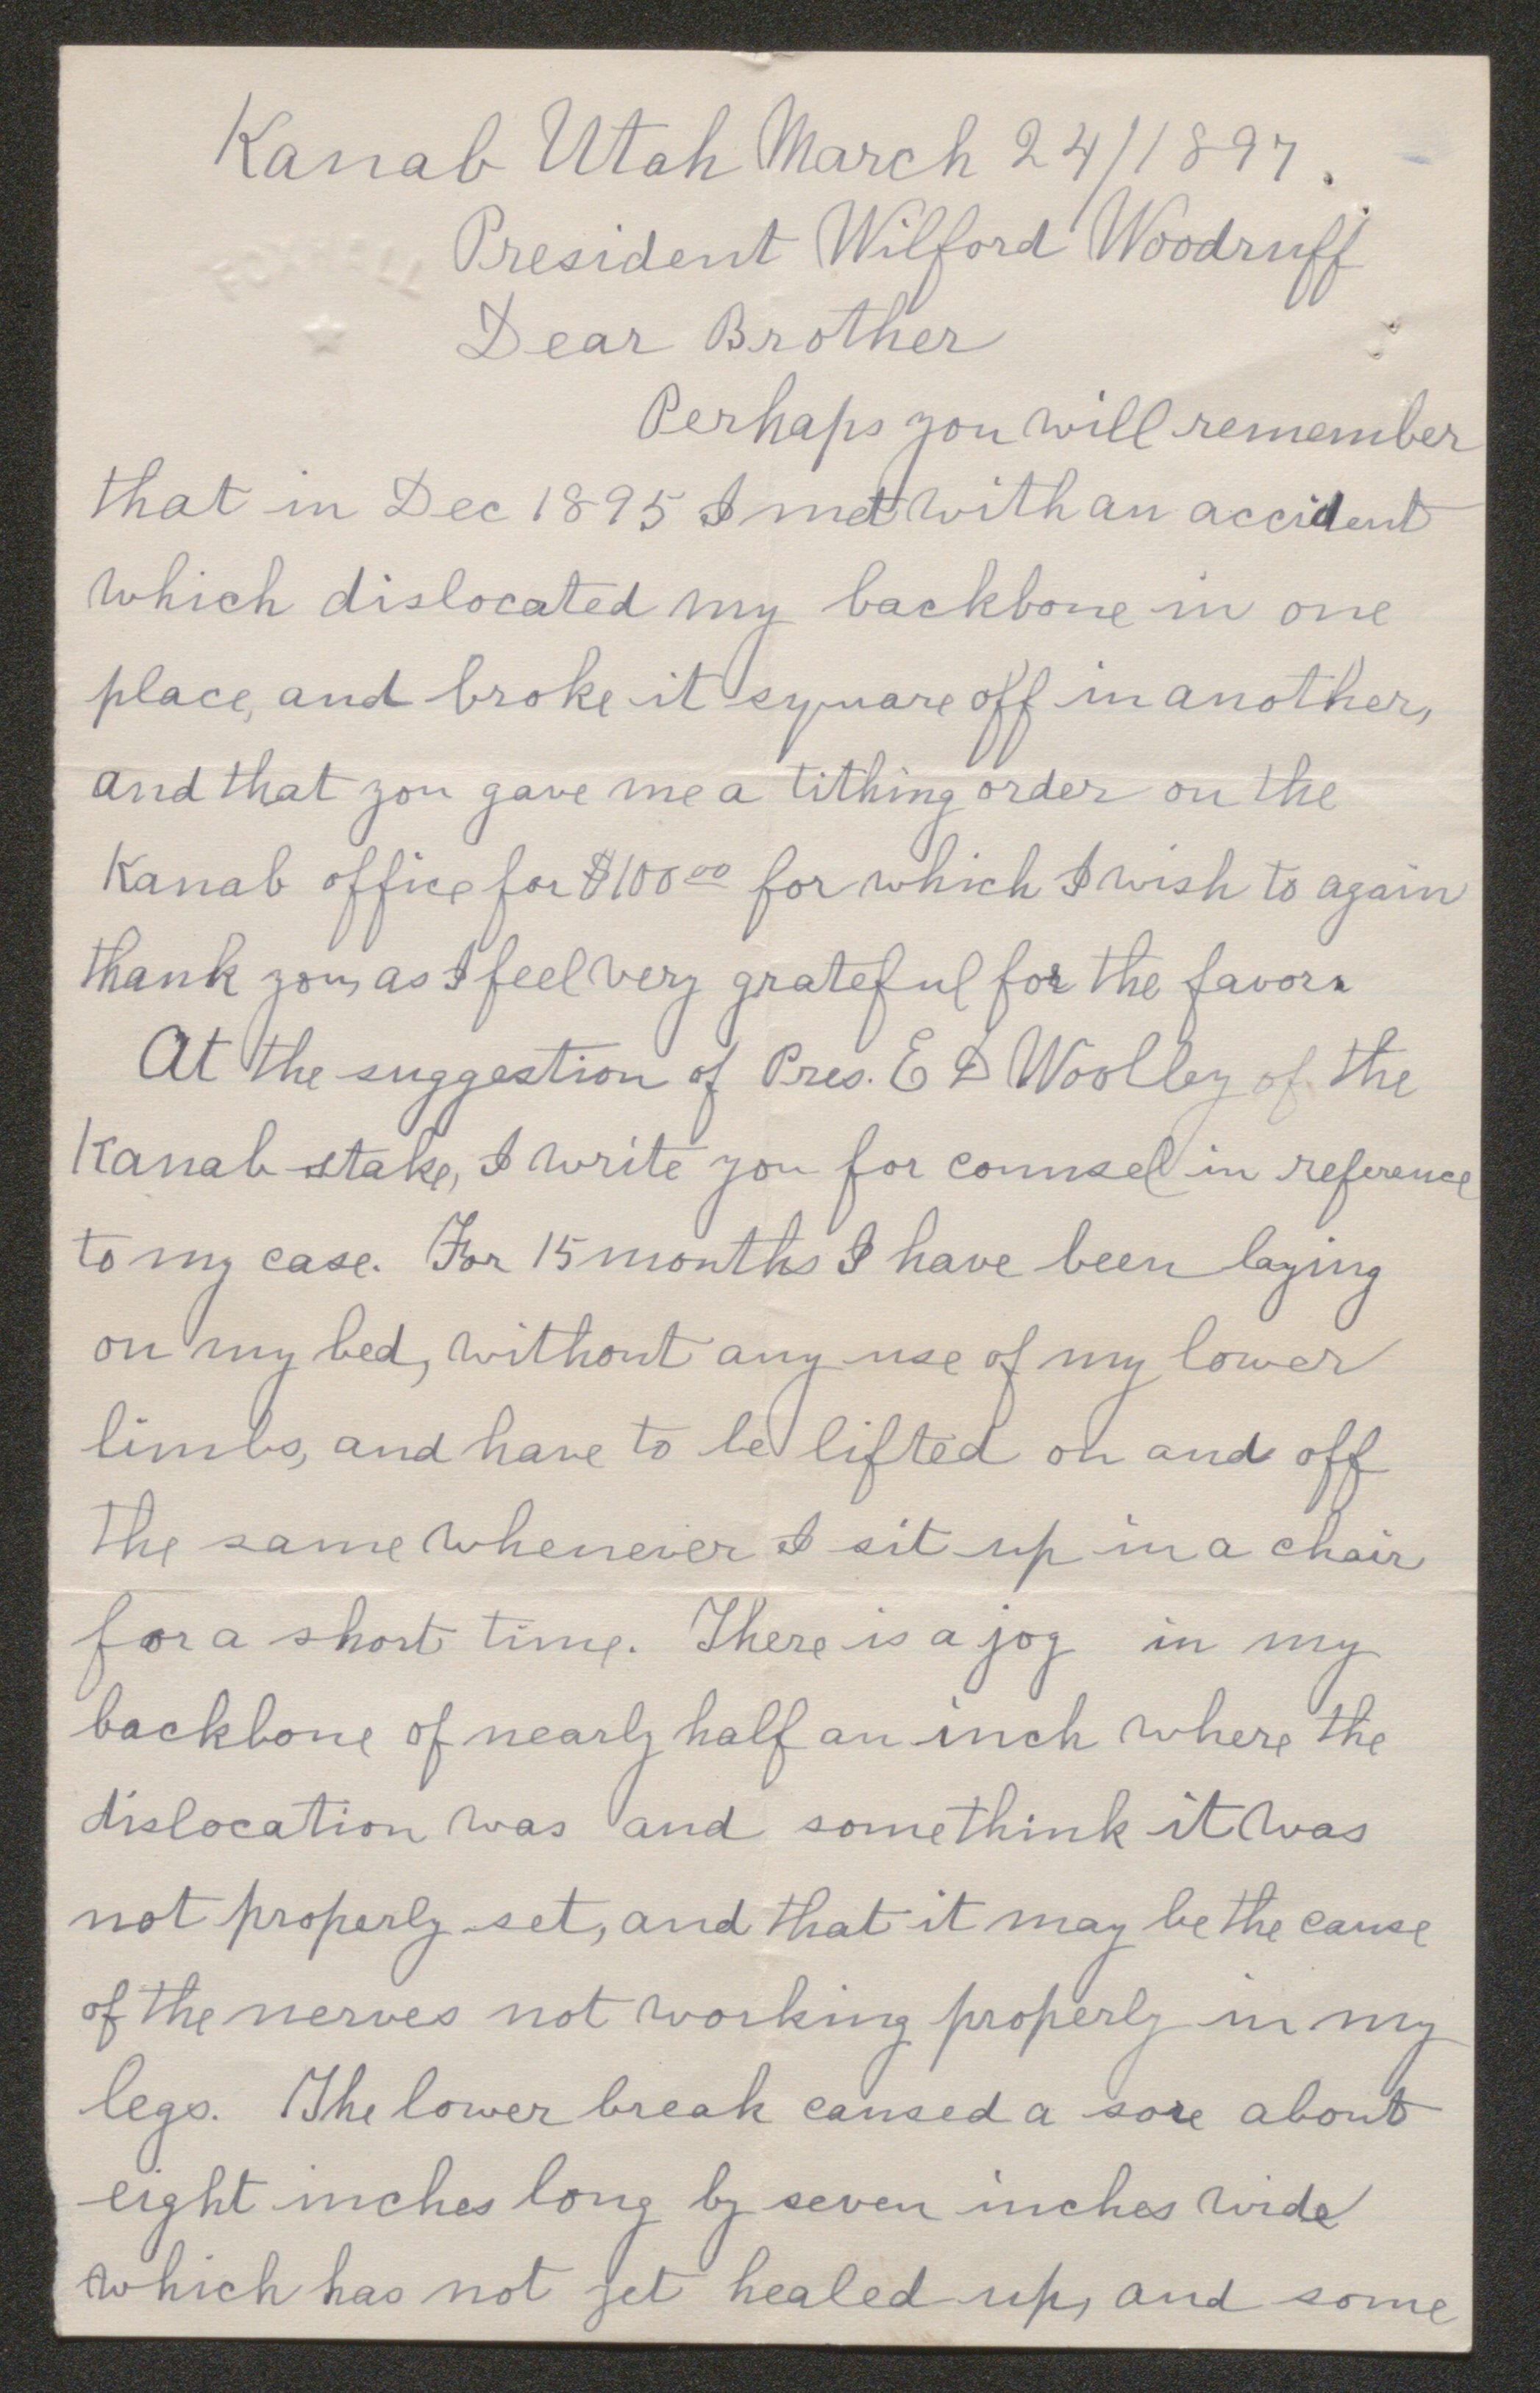 Kanab Utah March 24/1897.
President Wilford Woodruff
Dear Brother
Perhaps you will remember
that in Dec 1895 I met with an accident
which dislocated my backbone in one
place, and broke it square off in another,
and that you gave me a tithing order on the
Kanab office for $100 00 for which I wish to again
thank you, as I feel very grateful for the favor.
At the suggestion of Pres. E D Woolley of the
Kanab stake, I write you for counsel in reference
to my case. For 15 months I have been laying
on my bed, without any use of my lower
limbs, and have to be lifted on and off
the same whenever I sit up in a chair
for a short time. There is a jog in my
backbone of nearly half an inch where the
dislocation was and some think it was
not properly set, and that it may be the cause
of the nerves not working properly in my
legs. The lower break caused a sore about
eight inches long by seven inches wide
which has not yet healed up, and some